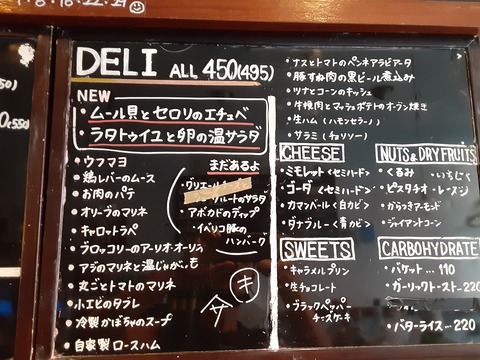 DELI ALL 450(495)
NEW
・ムール貝とセロリのエチュベ
・ラタトゥイユと卵の温サラダ
・ウフマヨ
・鶏レバーのムース
・お肉のパテ
・オリーヴのマリネ
・キャロットラペ
・ブロッコリーのアーリオ・オーリオ
・アジのマリネと温じゃがいも
・丸ごとトマトのマリネ
・小エビのタブレ
・冷製かぼちゃのスープ
・自家製ロースハム
まだあるよ
のサラダ
・アボカドのディップ
・イベリコ豚の
ハンバーグ
・ナスとトマトのペンネアラビアータ
・豚すね肉の黒ビール煮込み
・ツナとコーンのキッシュ
・牛挽肉とマッシュポテトのオーブン焼き
・生ハム(ハモンセラーノ)
・サラミ(チョリソー)
CHEESE
・ミモレット<セミハード>
・ゴーダ<セミハード>
・カマンベール<白カビ>
・ダナブルー<青カビ>
NUTS&DRY FRUITS
・くるみ ・いちじく
・ピスタチオ ・レーズン
・ジャイアントコーン
SWEETS
・キャラメルプリン
・生チョコレート
・ブラックペッパー
チーズケーキ
CARBOHYDRATE
・バケット… 110
・ガーリックトースト…220
・バターライス…220